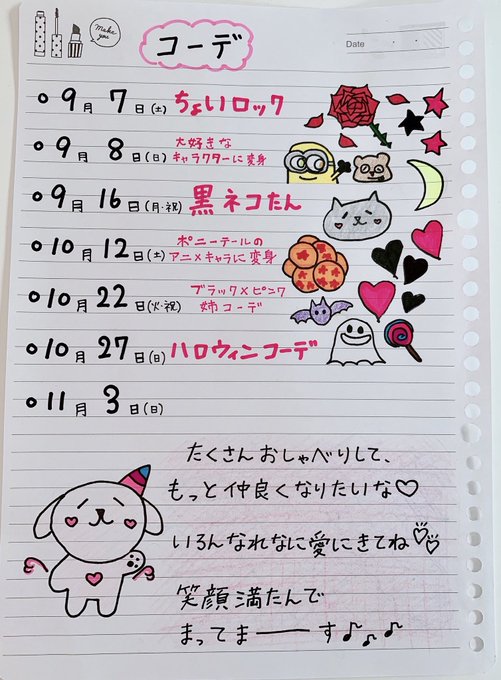 Make you
コーデ
Date . .
○9月 7日(土) ちょいロック
○9月 8日(日) 大好きな
キャラクターに変身
○9月 16日(月・祝) 黒ネコたん
○10月 12日(土) ポニーテールの
アニメキャラに変身
○10月 22日(火・祝) ブラック×ピンク
姉コーデ
○10月 27日(日) ハロウィンコーデ
○11月 3日(日)
たくさんおしゃべりして、
もっと仲良くなりたいな♡
いろんなれなに愛にきてね♡♡
笑顔満たんで
まってまーーす♪♪♪